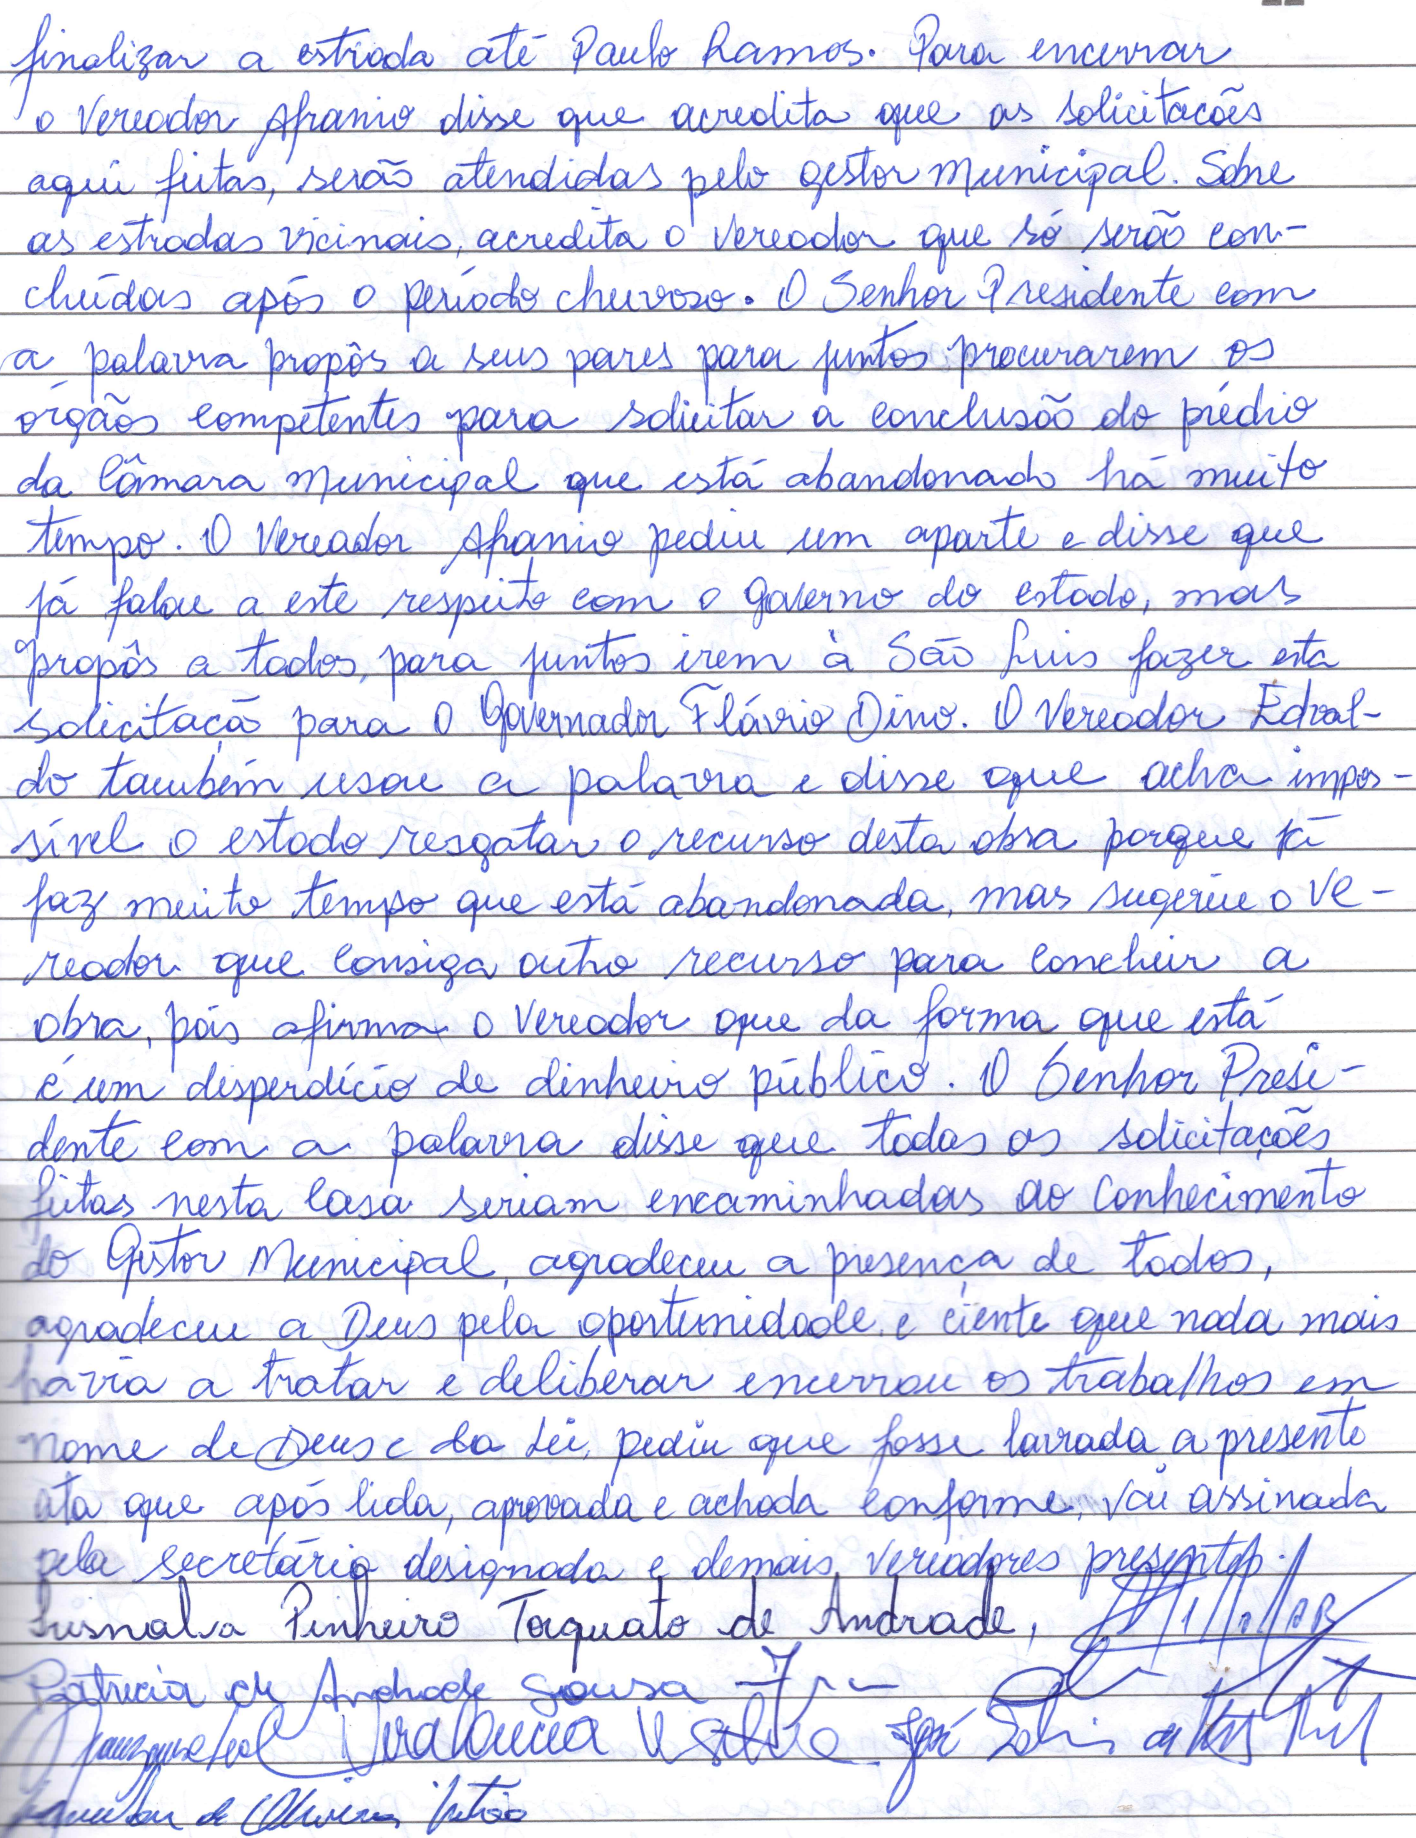 finalizar a estrada até Paulo Ramos. Para encerrar
o Vereador Afranio disse que acredita que as solicitacões
aqui feitas, serão atendidas pelo gestor municipal. Sobre
as estradas vicinais, acredita o Vereador que só serão con-
cluídas após o período chuvoso. O Senhor Presidente com
a palavra propôs a seus pares para juntos procurarem os
orgãos competentes para solicitar a conclusão do prédio
da Câmara Municipal que está abandonado há muito
tempo. O Vereador Afranio pediu um aparte e disse que
já falou a este respeito com o governo do estado, mas
propôs a todos, para juntos irem à São Luis fazer esta
solicitaçã para o Governador Flávio Dino. O Vereador Edval-
do também usou a palavra e disse que acha impos-
sível o estado resgatar o recurso desta obra porque já
faz muito tempo que está abandonada, mas sugeriu o Ve-
reador que consiga outro recurso para concluir a
obra, pois afirma o Vereador que da forma que está
é um disperdício de dinheiro público. O Senhor Presi-
dente com a palavra disse que todas as solicitações
feitas nesta Casa seriam encaminhadas ao conhecimento
do Gestor Municipal, agradeceu a presença de todos,
agradeceu a Deus pela oportunidade, e ciente que nada mais
havia a tratar e deliberar encerrou os trabalhos em
nome de Deus e da Lei, pediu que fosse lavrada a presente
ata que após lida, aprovada e achada conforme, vai assinada
pela secretária designada e demais vereadores presentes.
Lusnalva Pinheiro Torquato de Andrade,
Patricia de Andrade Sousa
Vera Lucia V Silva José
de Oliveira